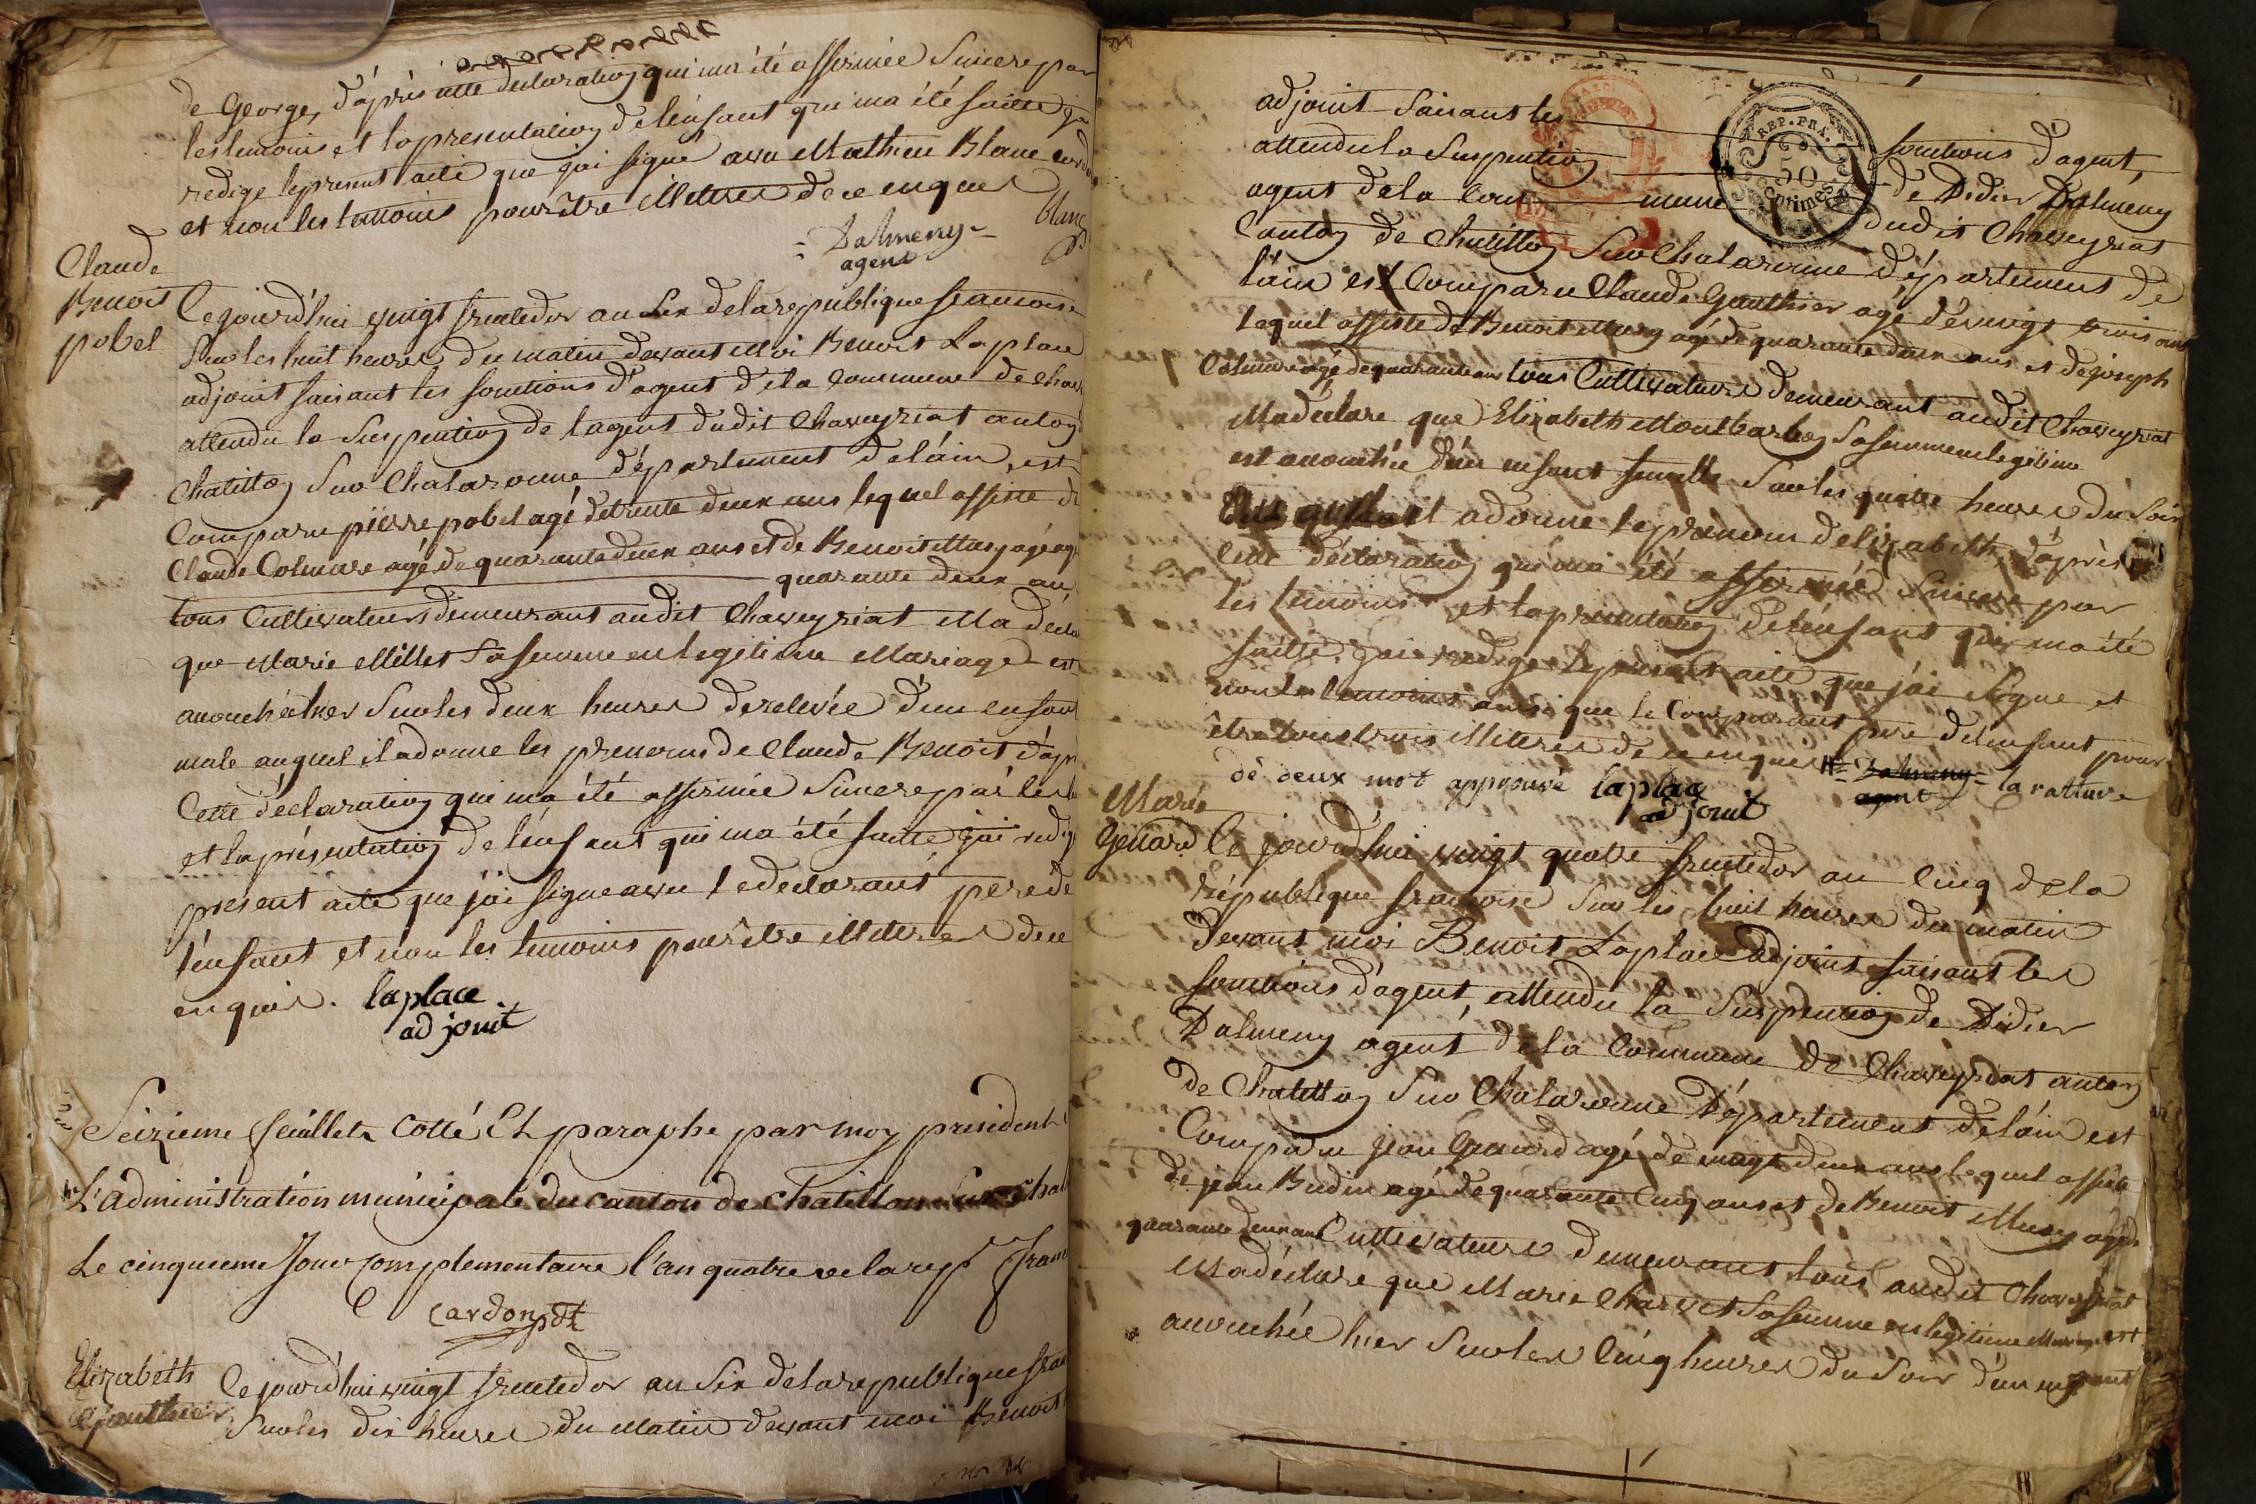 de George, d'après cette declaration qui ma été affirmée Sincere par
les temoins et la presentation de l'enfant qui ma été faitte jai
redigé le present acte que jai signé avec Mathieu Blanc
et non les temoins pour être illiteres de ce enquis
Dalmeny
agent
blanc
Claude
Benoit
pobel
Cejourd'hui vingt fructidor an Six de la republique francoise
Sur les huit heures du matin devant Moi Benoit Laplace
adjoint faisant les fonctions d'agent de la Commune de Chav
attendu la Suspention de l'agent dudit Chaveyriat canton
Chatillon Sur Chalaronne département de l'ain, est
Comparu pierre pobel agé de trente deux ans lequel assisté de
Claude Colmare agé de quarante deux ans et de Benoit Mury agé
quarante deux an
tous Cultivateurs demeurant audit Chaveyriat Ma décla
que Marie Millet Sa femme en legitime Mariage est
accouchée hier Sur les deux heures de relevée d'un enfant
male auquel il a donné les prenoms de Claude Benoit, d'apr
Cette déclaration qui ma été affirmée Sincere par les
et la présentation de l'enfant qui ma été faitte jai redigé
present acte que j'ai signé avec le declarant pere de
l'enfant et non les temoins pour être illiteres de ce
enquis. laplace
adjoint
Seizieme feuillet Cotté Et paraphé par moy president
L'administration municipale du canton de chatillon Sur Chal
Le cinquieme Jour complementaire l'an quatre de la rep fran
Cardon pdt
Elizabeth
Gauthier
Cejourd'hui vingt fructidor an Six de la republique fran
Sur les dix heures du Matin devant moi Benoit
adjoint faisant les fonctions d'agent,
attendu la Suspention de Didier Dalmeny
agent de la Commune dudit Chaveyriat
Canton de Chatillon Sur Chalaronne département de
l'ain est Comparu Claude Gauthier agé de vingt trois ans
lequel assisté de Benoit Mury agé de quarante deux ans et de joseph
Colmare agé de quarante ans tous Cultivateurs demeurant audit Chaveyriat
Ma déclaré que Elizabeth Montbarbon Sa femme en legitime
est accouchée d'un enfant femelle Sur les quatre heures du Soir
a donné le prenom d'elizabeth, d'après
Cette déclaration qui ma été affirmée Sincere par
les temoins et la presentation de l'enfant qui ma été
faitte, jai redigé le present acte que j'ai signé et
non les temoins ainsi que le Comparant pere de l'enfant pour
être tous trois illiteres de ce enquis Dalmeny la rature
agent
de deux mot approuvé laplace
adjoint
REP. FRA.
50
centimes
Marie
Genard
Ce jourd'hui vingt quatre fructidor an Cinq de la
république francoise Sur les huit heures du matin
devant moi Benoit Laplace adjoint faisant les
fonctions d'agent, attendu la Suspention de Didier
Dalmeny agent de la Commune de Chaveyriat canton
de Chatillon Sur Chalaronne Département de l'ain est
Comparu jean Genard agé de vingt deux ans lequel assisté
de jean Budin agé de quarante Cinq ans et de Benoit Mury agé de
quarante deux ans Cultivateurs demeurant tous audit Chaveyriat
Ma déclaré que Marie Charvet Sa femme en legitime Mariage est
accouchée hier Sur les Cinq heures du Soir d'un enfant